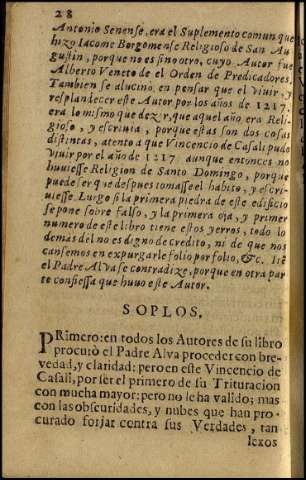 28
Antonio Senense, era el Suplemento comun que
hizo Iacome Borgomense Religioso de San Au
gustin, porque no es sino otro, cuyo Autor fue
Alberto Veneto de el Orden de Predicadores.
Tambien se alucinò en pensar que el vivir, y
resplandecer este Autor por los años de 1217.
era lo mismo que dezir, que aquel año era Reli-
gioso, y escrivia, porque estas son dos cosas
distintas, atento a que Vincencio de Casali pudo
vivir por el año de 1217. aunque entonces no
huviesse Religion de Santo Domingo, porque
puede ser que despues tomasse el habito, y escri-
viesse. Luego si la primera piedra de este edificio
se pone sobre falso, y la primera oja, y primer
numero de este libro tiene estos yerros, todo lo
demás del no es digno de credito, ni de que nos
cansemos en expurgarle folio por folio, &c. Itē
el Padre Alva se contradize, porque en otra par
te confiessa que huvo este Autor.
SOPLOS.
PRimero: en todos los Autores de su libro
procurò el Padre Alva proceder con bre-
vedad, y claridad: pero en este Vincencio de
Casali, por ser el primero de su Trituracion
con mucha mayor; pero no le ha valido; mas
con las obscuridades, y nubes que han pro-
curado forjar contra sus Verdades, tan
lexos